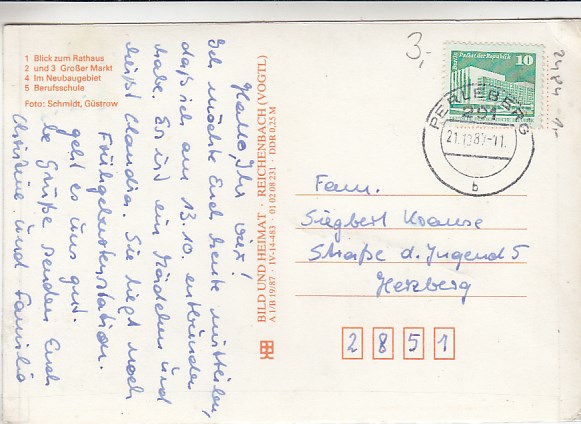 1 Blick zum Rathaus
2 und 3 Großer Markt
4 Im Neubaugebiet
5 Berufsschule
Foto: Schmidt, Güstrow
Hallo, Ihr vier!
Ich möchte Euch heute mitteilen,
daß ich am 13.10. entbunden
habe. Es ist ein Mädchen und
heißt Claudia. Sie liegt noch
Frühgeburtenstation.
geht es uns gut.
Grüße senden Euch
Christine und Familie
BILD UND HEIMAT · REICHENBACH (VOGTL)
A 1/B 19/87 · IV-14-483 · 01 02 08 231 · DDR 0,35 M
3,-
2484 1,-
Palast der Republik
10
PERLEBERG
21.10.87-11
b
Fam.
Siegbert Krause
Straße d. Jugend 5
Herzberg
2851